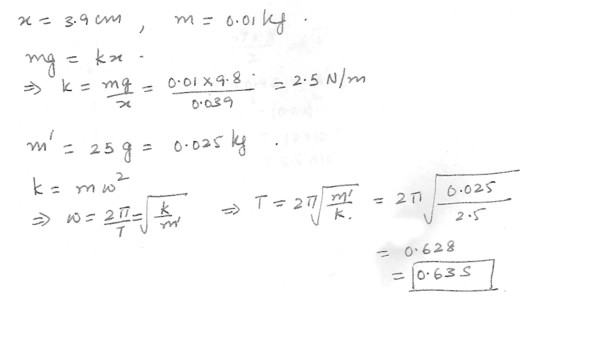 x = 3.9 cm , m = 0.01 kg .
mg = kx .
⇒ k = mg/x = 0.01 × 9.8 / 0.039 = 2.5 N/m
m' = 25 g = 0.025 kg .
k = mω²
⇒ ω = 2π/T = √(k/m') ⇒ T = 2π√(m'/k.) = 2π√(0.025/2.5)
= 0.628
= 0.63 S